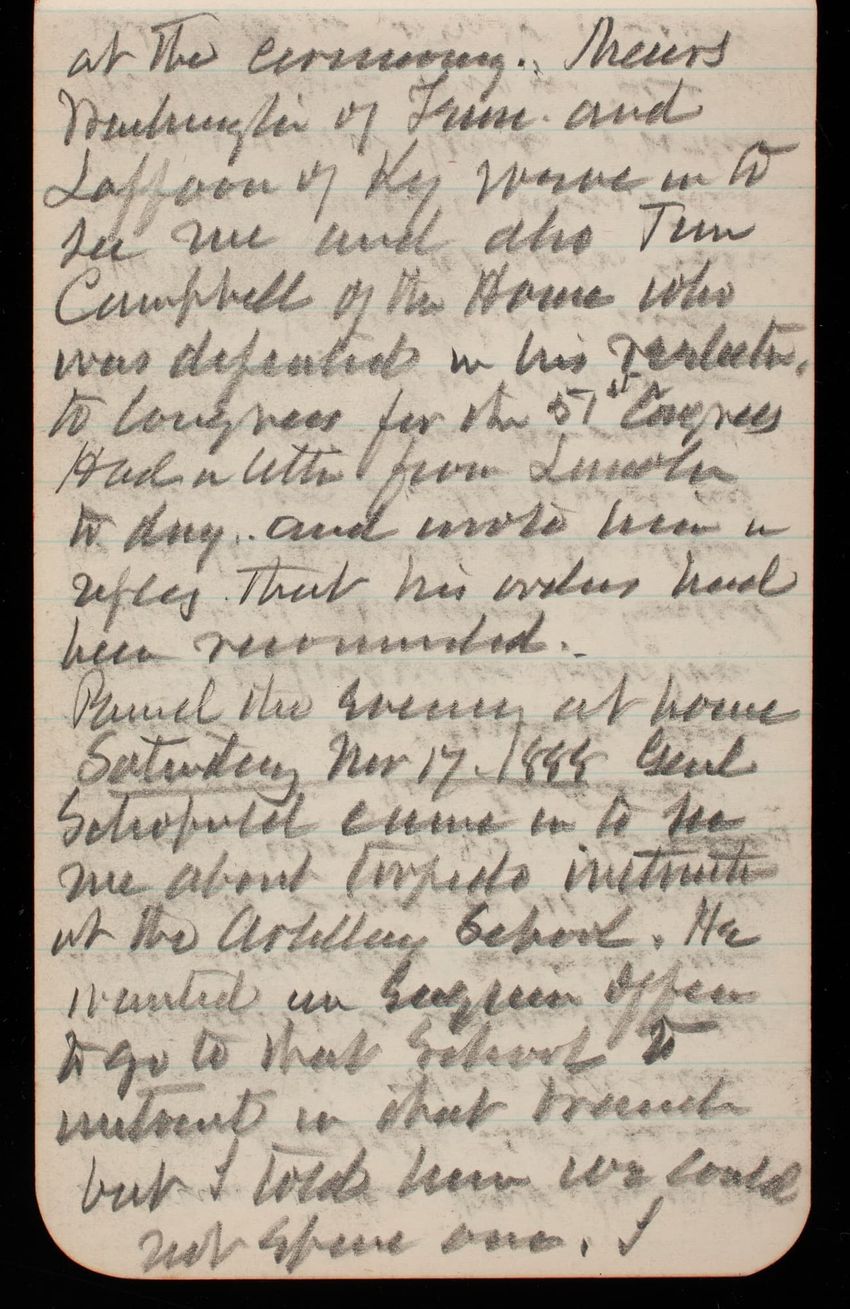 at the ceremony. Messrs
Washington of Tenn. and
Laffoon of Ky were in to
see me and also Tim
Campbell of the House who
was defeated in his reelectn.
to Congress for the 51st Congress
Had a letter from Lincoln
to day. and wrote him in
reply that his orders had
been rescinded.
Passed the evening at home
Saturday Nov 17. 1888 Genl
Schofield came in to see
me about torpedo instructn
at the Artillery School. He
wanted an Engineer Officer
to go to that School to
instruct in that branch
but I told him we could
not spare one. I